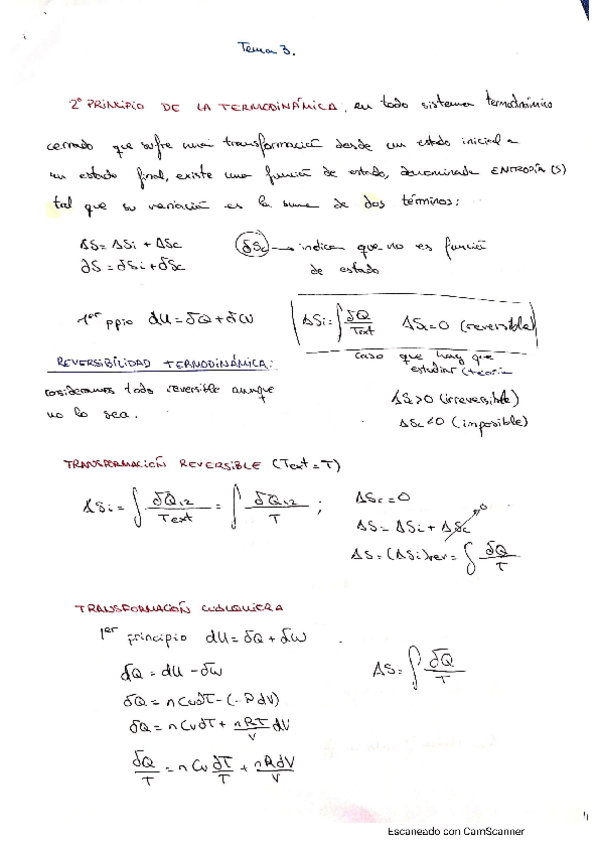 Tema 3.
2º PRINCIPIO DE LA TERMODINÁMICA: en todo sistema termodinámico
cerrado que sufre una transformación desde un estado inicial a
un estado final, existe una función de estado, denominada ENTROPÍA (S)
tal que su variación es la suma de dos términos:
ΔS = ΔSi + ΔSc
∂S = δSi + δSc
δSc → indican que no es función
de estado
1er ppio dU = δQ + δW
ΔSi = ∫ δQ/Text ΔSc = 0 (reversible)
caso que hay que
estudiar (teoría
REVERSIBILIDAD TERMODINÁMICA:
consideramos todo reversible aunque
no lo sea.
ΔSc > 0 (irreversible)
ΔSc < 0 (imposible)
TRANSFORMACIÓN REVERSIBLE (Text = T)
ΔSi = ∫ δQ12/Text = ∫ δQ12/T ;
ΔSc = 0
ΔS = ΔSi + ΔSc → 0
ΔS = (ΔSi)rev = ∫ δQ/T
TRANSFORMACIÓN CUALQUIERA
1er principio dU = δQ + δW
δQ = dU - δW
δQ = nCvdT - (-PdV)
δQ = nCvdT + nRT/V dV
δQ/T = nCv dT/T + nRdV/V
ΔS = ∫ δQ/T
Escaneado con CamScanner